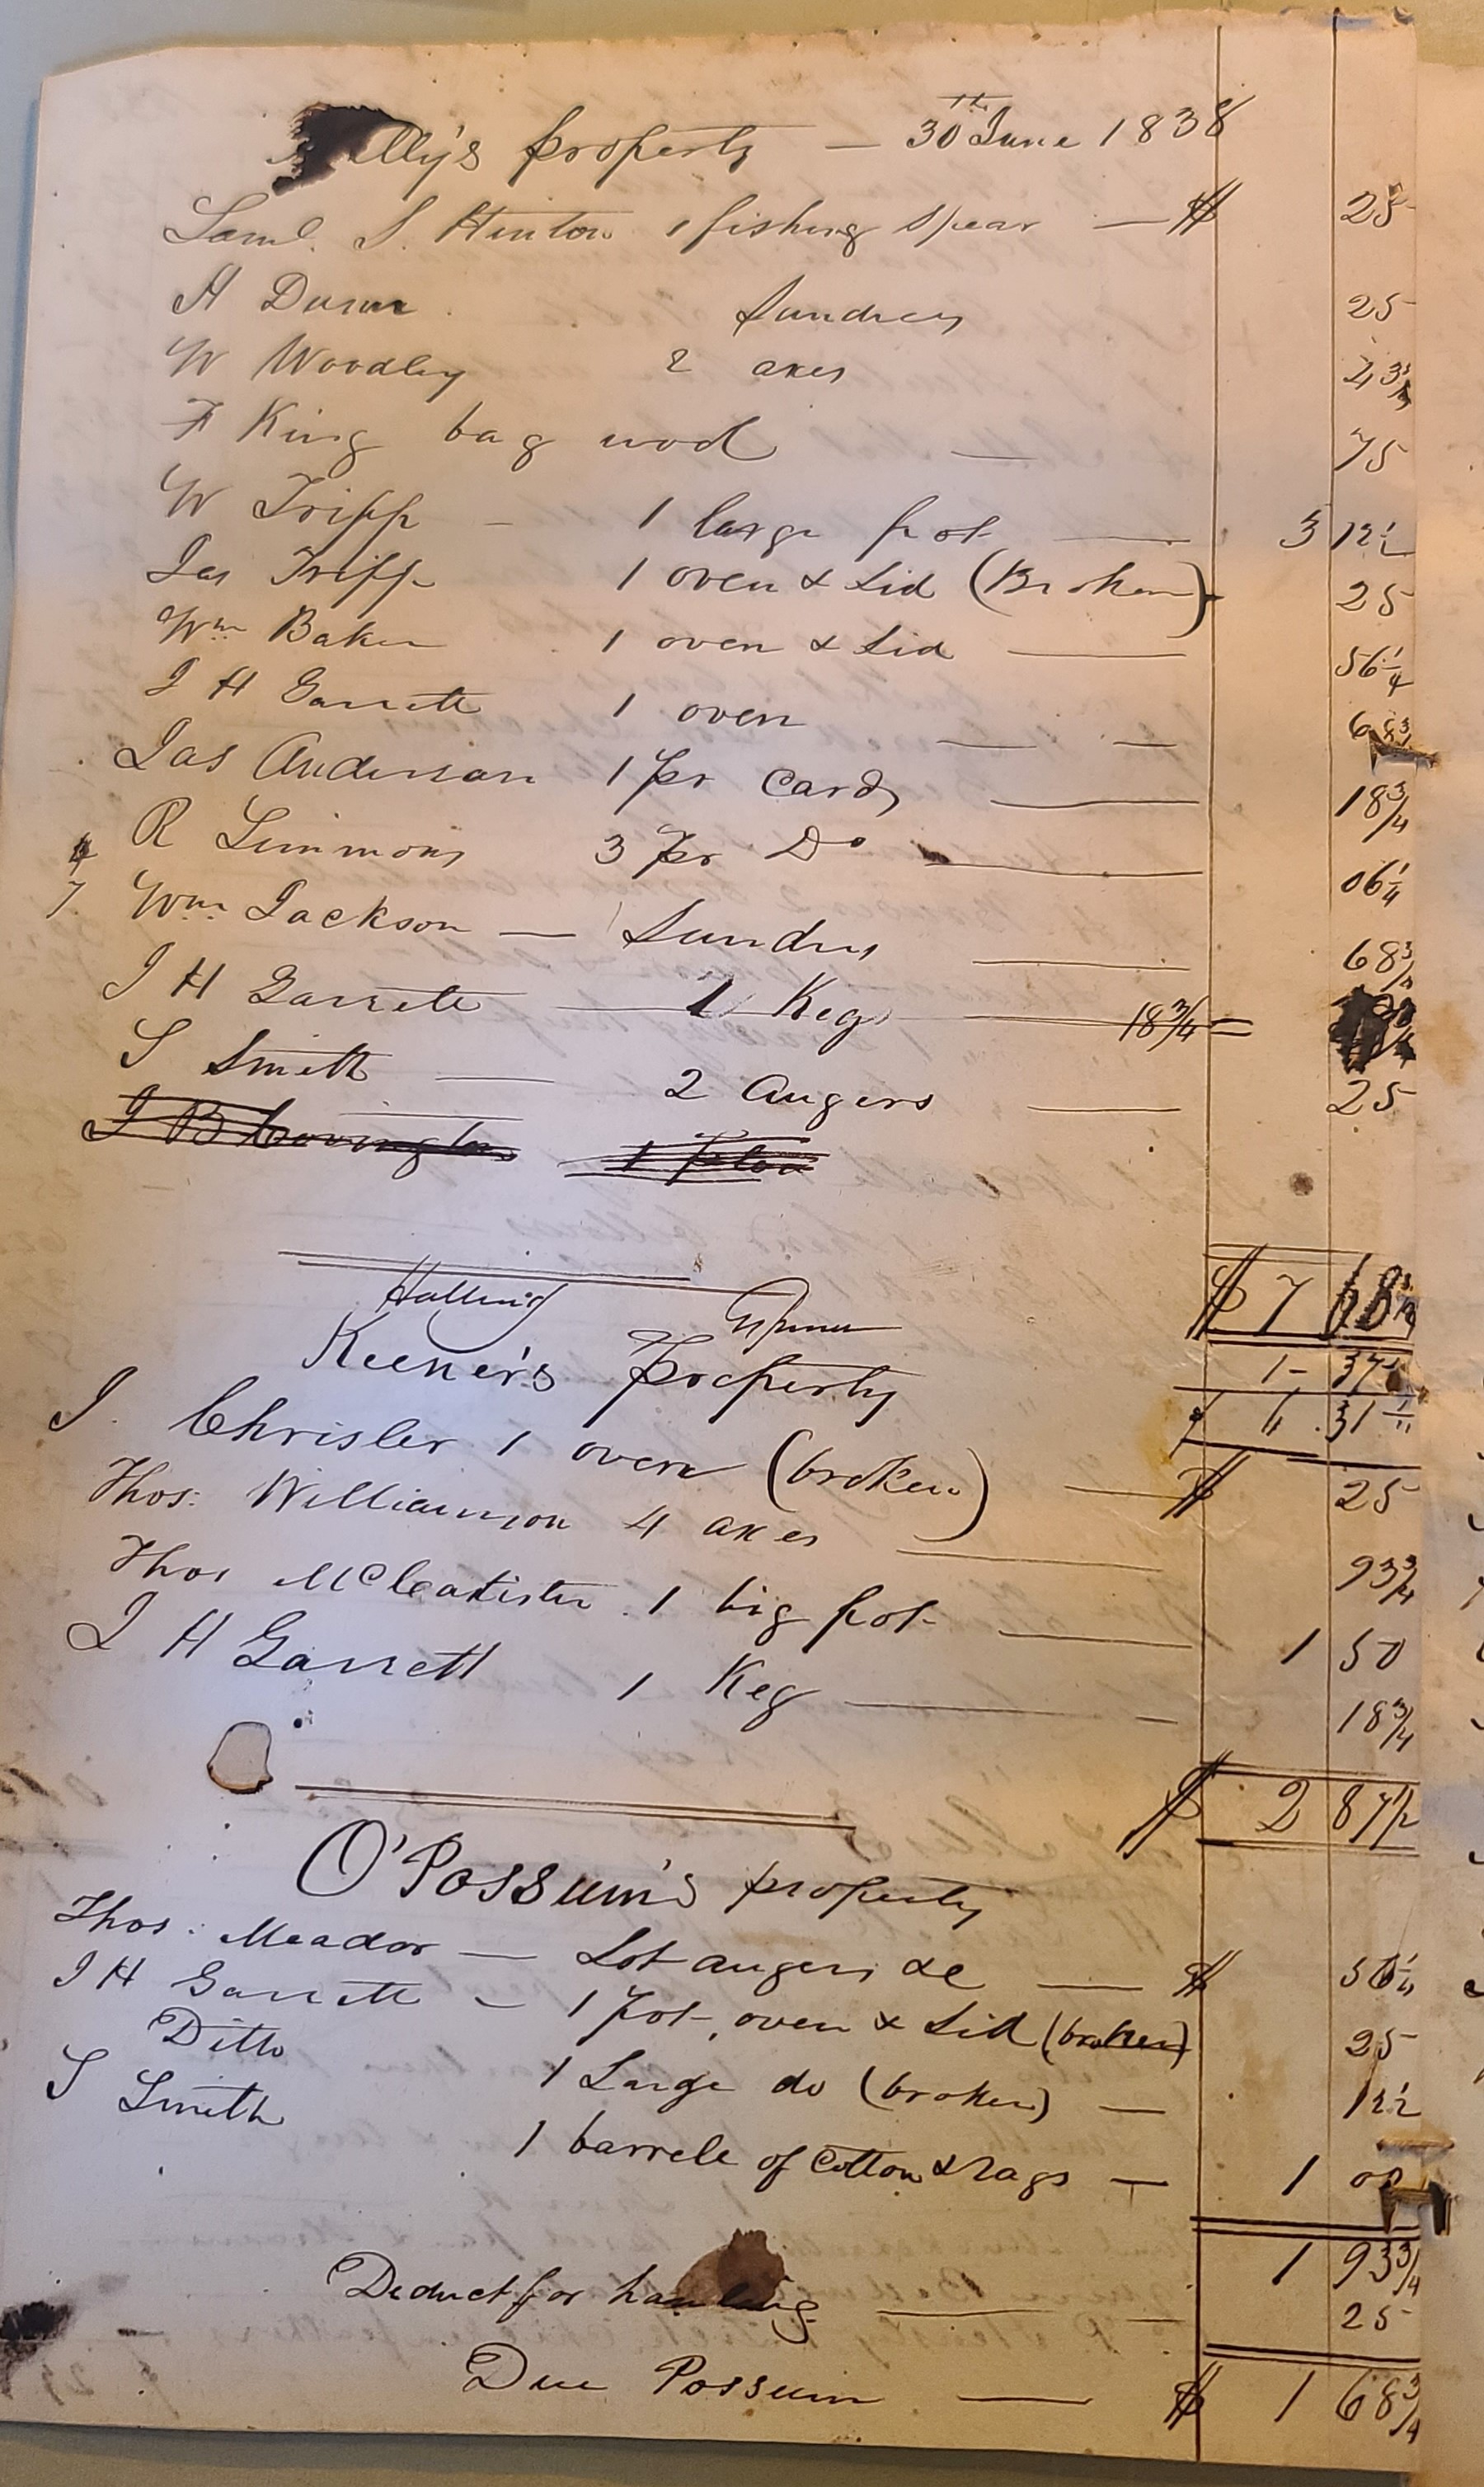 lly's property — 30th June 1838
Saml. S. Hinton 1 fishing Spear — $ 25
H Dunn Sundries 25
W Woodley 2 axes 43 3/4
F King bag wool — 75
W Tripp — 1 large pot — 3 12 1/2
Jas Tripp 1 oven & Lid (Broken) 25
Wm Baker 1 oven & Lid — 56 1/4
J H Garrett 1 oven — — 68 3/4
Jas Anderson 1 pr Cards — 18 3/4
R Simmons 3 pr Do — 06 1/4
7. Wm Jackson — Sundries — 68 3/4
J H Garrett — 1 Keg — 18 3/4 =
S Smith — 2 Augers — 25
J B Covington 1 Plow
$ 7 68 3/4
Halling
1 - 37
Keener's Property
31
J. Chrisler 1 oven (broken) — $ 25
Thos. Williamson 4 axes — 93 3/4
Thos McCalister. 1 big pot — 1 50
J H Garrett 1 Keg — — 18 3/4
$ 2 87 1/2
O'Possum's property
Thos: Meador — Lot augers &c — $ 56 1/4
J H Garrett — 1 pot, oven & Lid (broken) 25
Ditto 1 Large do (broken) — 12 1/2
S Smith 1 barrele of Cotton & rags — 1 00
1 93 3/4
Deduct for hauling — — 25
Due Possum — $ 1 68 3/4